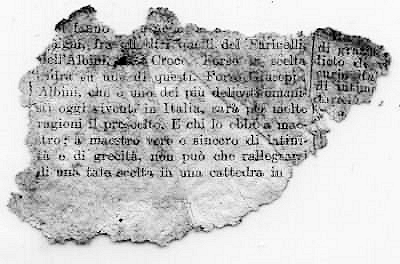 si fanno
fra gli altri quelli del Taricelli,
dell'Albini, Croce. Forse la scelta
cadrà su uno di questi. Forse Giuseppe
Albini, che è uno dei piu delicati umani-
sti oggi viventi in Italia, sarà per molte
ragioni il prescelto. E chi lo ebbe a mae-
stro; a maestro vero e sincero di latini-
tà e di grecità, non può che rallegrarsi
di una tale scelta in una cattedra in
di
di
di intimo